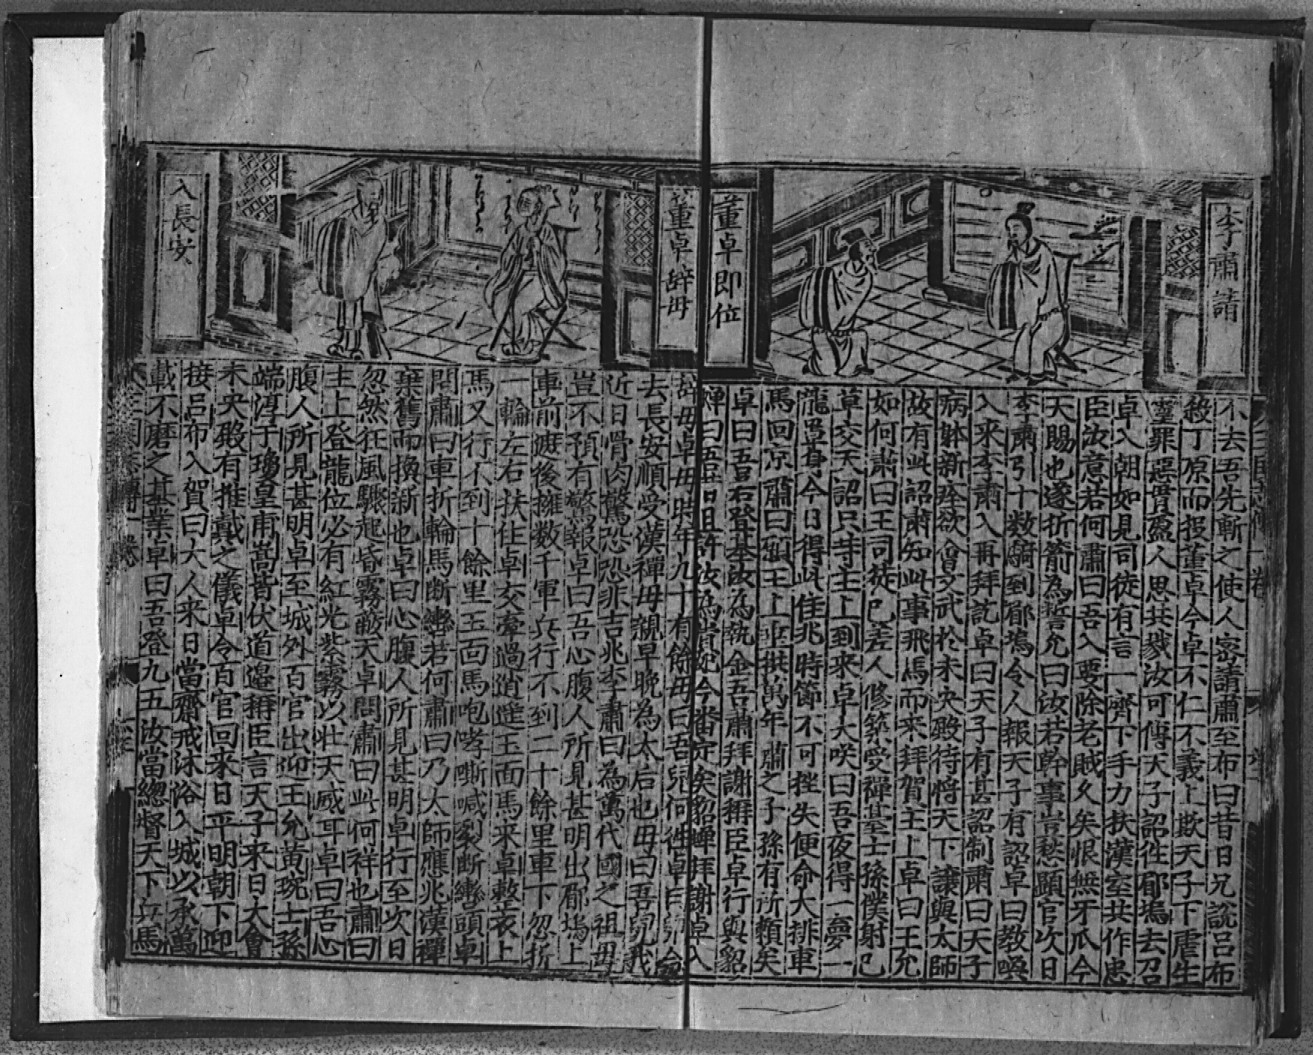 李肅請
董卓即位
不去吾先斬之使人密請肅至布曰昔日兄說呂布
殺丁原而投董卓今卓不仁不義上欺天子下虐生
靈罪惡貫盈人思共戮汝可傳天子詔徃郿塢去召
卓入朝如見司徒有言一齊下手力扶漢室共作忠
臣汝意若何肅曰吾入要除老賊久矣恨無牙爪今
天賜也遂折箭為誓允曰汝若幹事豈愁顯官次日
李肅引十数騎到郿塢令人報天子有詔卓曰教喚
入來李肅入再拜訖卓曰天子有甚詔制肅曰天子
病躰新痊欲會文武扵未央殿待將天下讓與太師
故有此詔肅知此事飛馬而来拜賀主上卓曰王允
如何肅曰王司徒已差人修築受禪基士孫僕射已
草交天詔只等主上到來卓大咲曰吾夜得一夢一
龍罩身今日得此佳兆時節不可挫失便命大排車
馬回京肅曰願王上洪萬年肅之子孫有所賴矣
卓曰吾若登基汝為執金吾肅拜謝稱臣卓行與貂
蟬曰吾昔日且許汝為貴妃今番定矣貂蟬拜謝卓入
董卓辞母
入長安
辞母卓母時年九十有餘母曰吾兒何徃卓曰兒今
去長安順受漢禪母親早晚為太后也母曰吾兒我
近日骨肉驚恐恐非吉兆李肅曰為萬代國之祖母
豈不預有驚報卓曰吾心腹人所見甚明出郿塢上
車前遮後擁数千軍兵行不到二十餘里車下忽折
一輪左右扶住卓交牽過逍遥玉面馬来卓整衣上
馬又行不到十餘里玉面馬咆哮嘶喊裂断轡頭卓
問肅曰車折輪馬断轡若何肅曰乃太師應兆漢禪
棄舊而換新也卓曰心腹人所見甚明卓行至次日
忽然狂風驟起昏霧蔽天卓問肅曰此何祥也肅曰
主上登龍位必有紅光紫霧以壮天威耳卓曰吾心
腹人所見甚明卓至城外百官出迎王允黄琬士孫
端淳于瓊皇甫嵩皆伏道邉稱臣言天子來日大會
未央殿有推戴之儀卓令百官回来日平明朝下迎
接吕布入賀曰大人来日當齋戒沐浴入城以承萬
載不磨之基業卓曰吾登九五汝當緫督天下兵馬